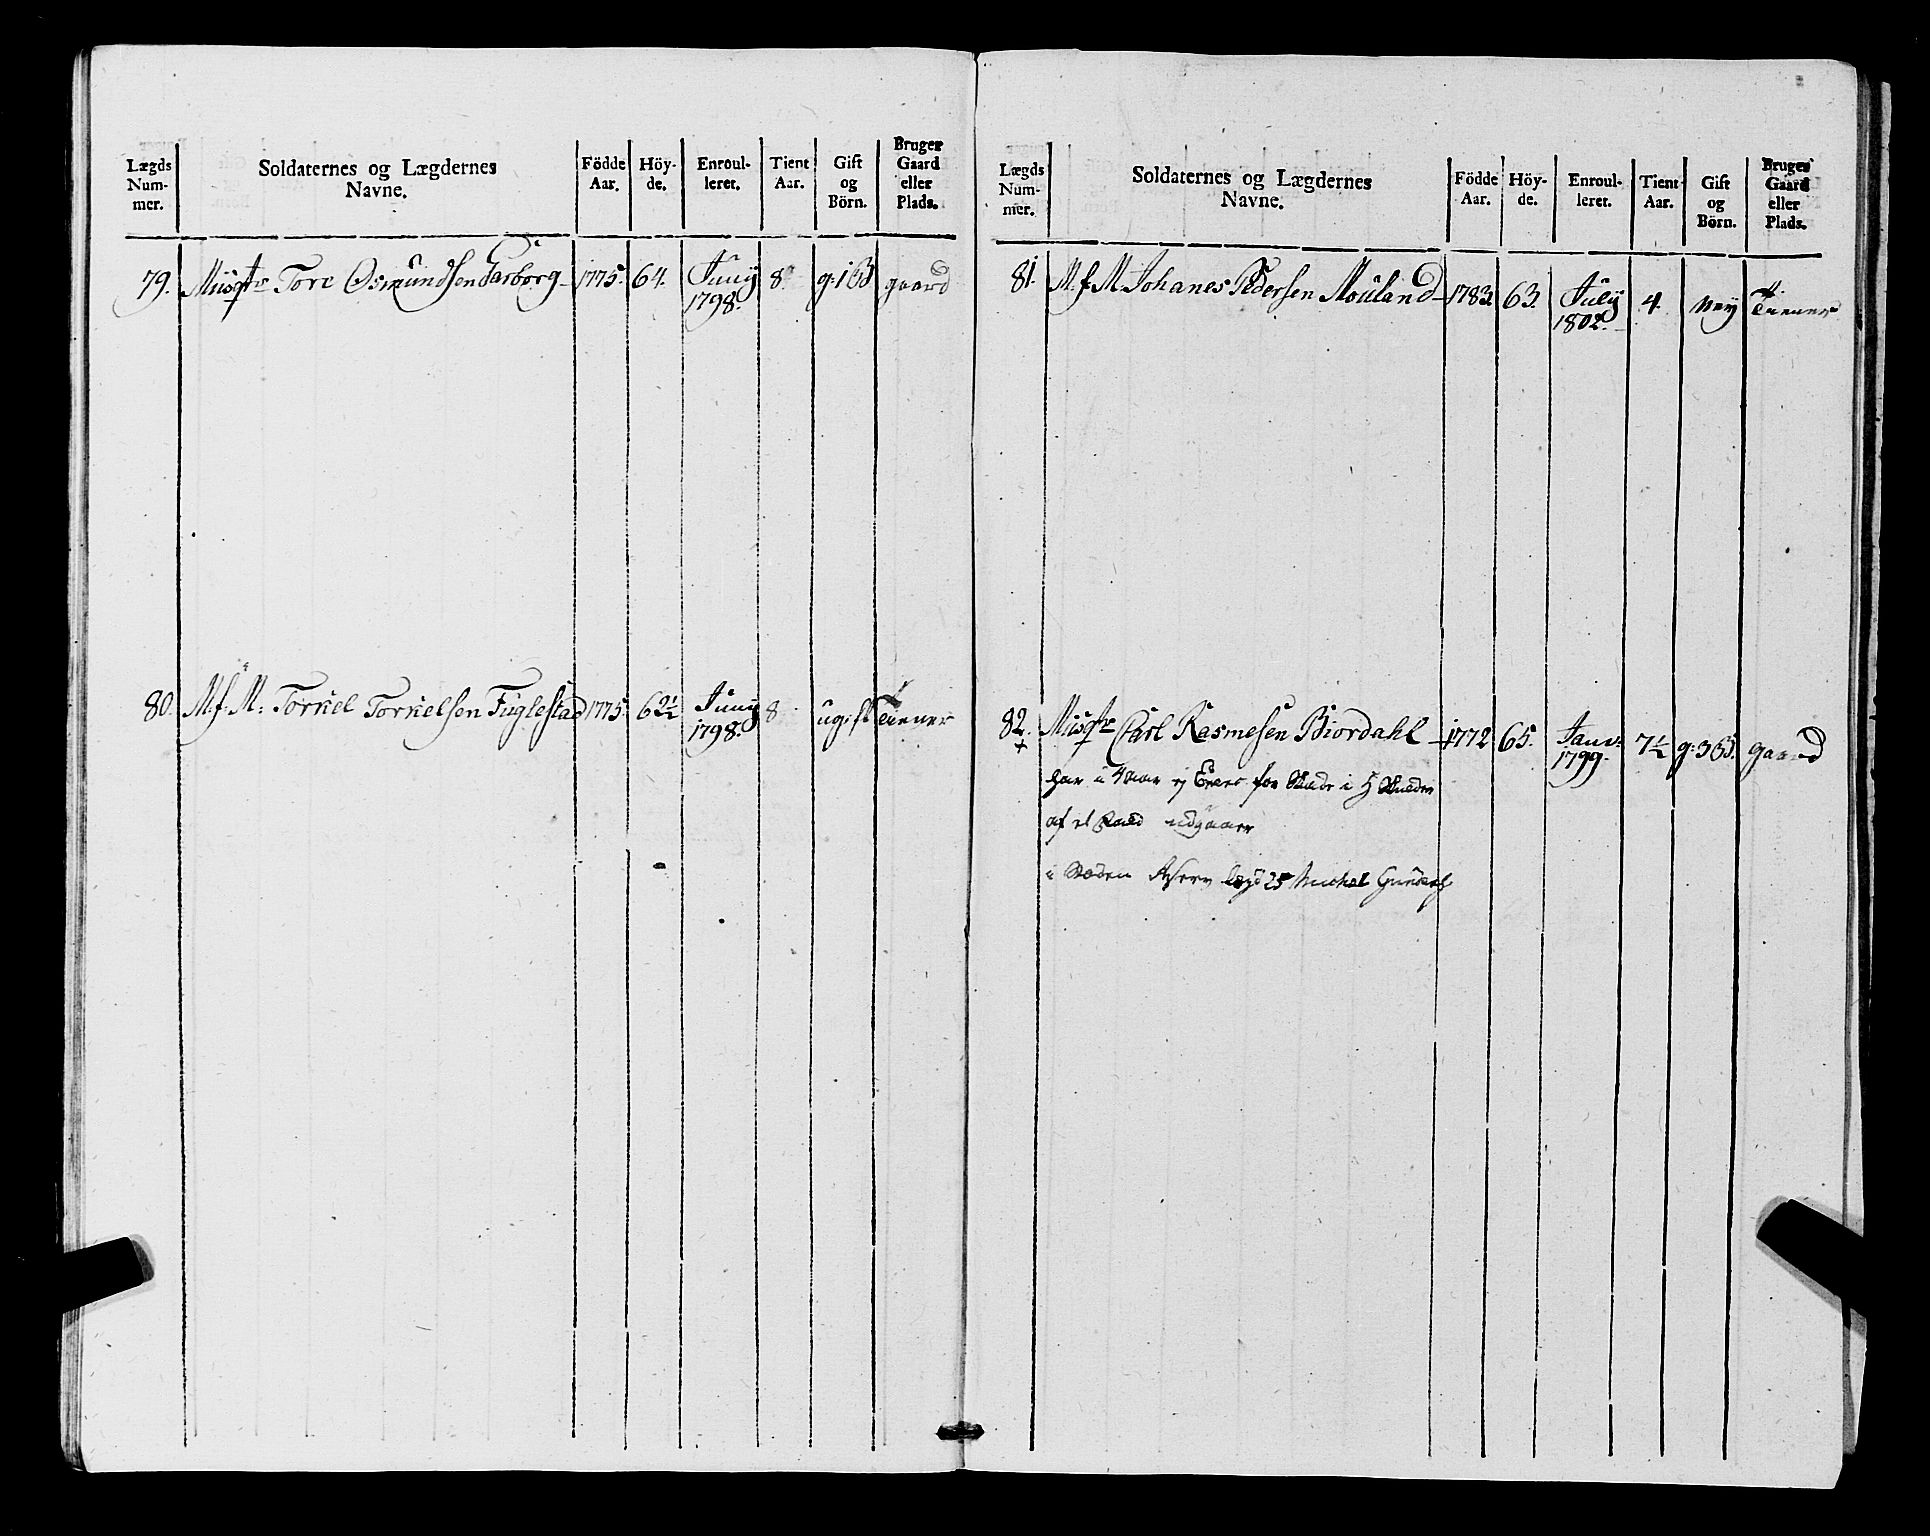 Lægds Num- mer.
Soldaternes og Lægdernes Navne.
Födde Aar.
Höy- de.
Enroul- leret.
Tient Aar.
Gift og Börn.
Bruger Gaard eller Plads.
79. Musqtr Tore Osmundsen Garborg 1775. 64. Juny 1798. 8 g: 1 B gaard
80. M: f: M: Torkiel Torkielsen Fuglestad 1775. 62½ Juny 1798. 8 ugift Tiener
Lægds Num- mer.
Soldaternes og Lægdernes Navne.
Födde Aar.
Höy- de.
Enroul- leret.
Tient Aar.
Gift og Börn.
Bruger Gaard eller Plads.
81. M. f. M. Johanes Pedersen Mouland 1783. 63. July 1802. 4. ney Tiener
82. Musqtr Carl Rasmesen Biordahl 1772 65. Janv: 1799. 7½ g: 3 B. gaard
har i 4 aar ej for Skade i H Skulder
af et udgaaer
i Steden lægd 25 Michel